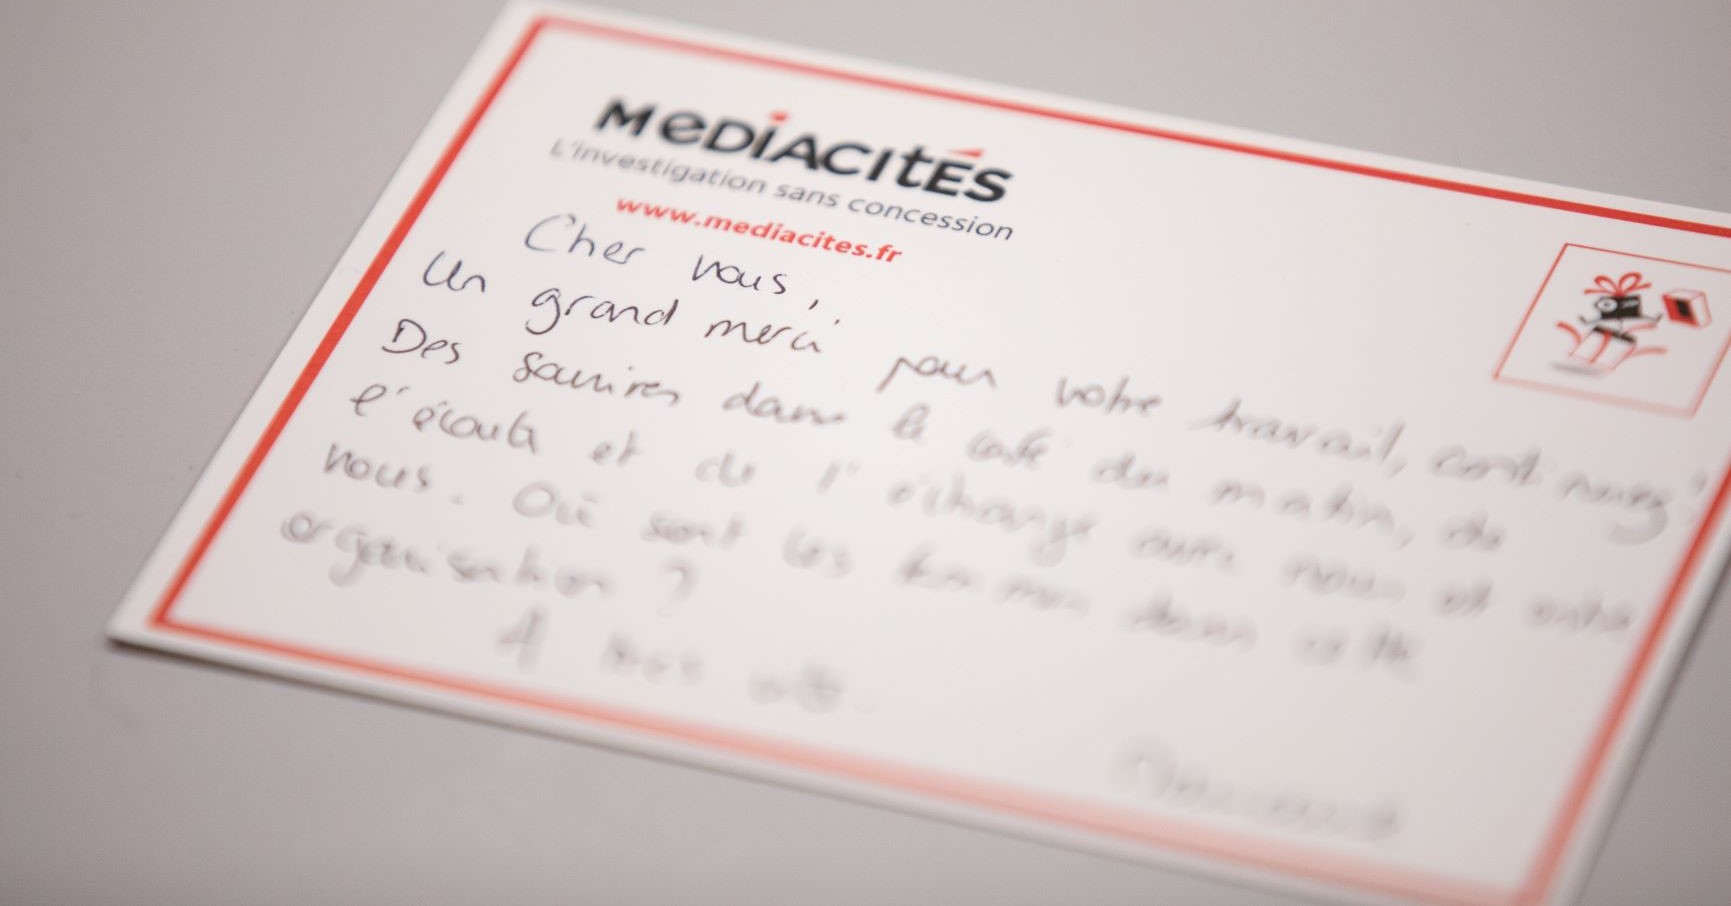 MeDIACItÉS
L'investigation sans concession
www.mediacites.fr
Cher vous,
Un grand merci pour votre travail, continuez !
Des sourires dans le café du matin, de
l'écoute et de l'échange avec nous et entre
nous. Où sont les femmes dans cette
organisation ?
A très vite.